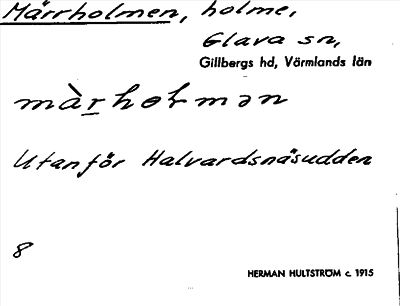 Märrholmen, holme,
Glava sn,
Gillbergs hd, Värmlands län
màr̲hɷlmən
Utanför Halvardsnäsudden
8
HERMAN HULTSTRÖM c. 1915